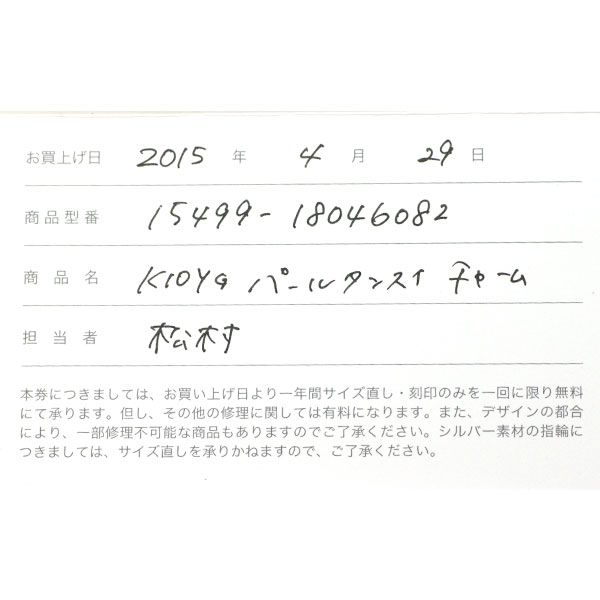 お買上げ日 2015 年 4 月 29 日
商品型番 15499-18046082
商品名 K10YG パールタンスイ チャーム
担当者 松村
本券につきましては、お買い上げ日より一年間サイズ直し・刻印のみを一回に限り無料
にて承ります。但し、その他の修理に関しては有料になります。また、デザインの都合
により、一部修理不可能な商品もありますのでご了承ください。シルバー素材の指輪に
つきましては、サイズ直しを承りかねますので、ご了承ください。